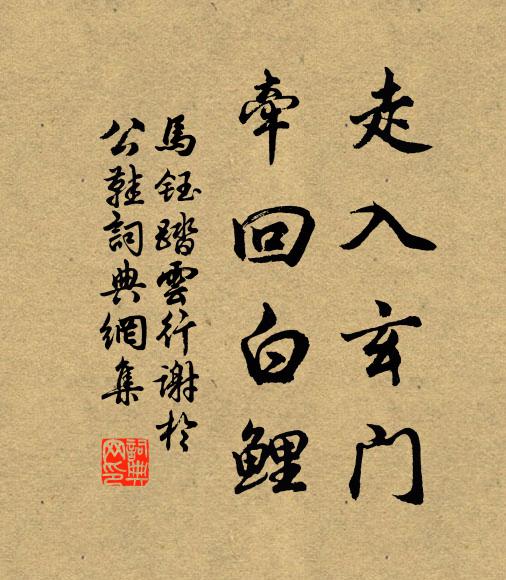 走入玄門
牽回白鯉
馬鈺踏雲行謝於
公鞋詞典網集
詞典
网印